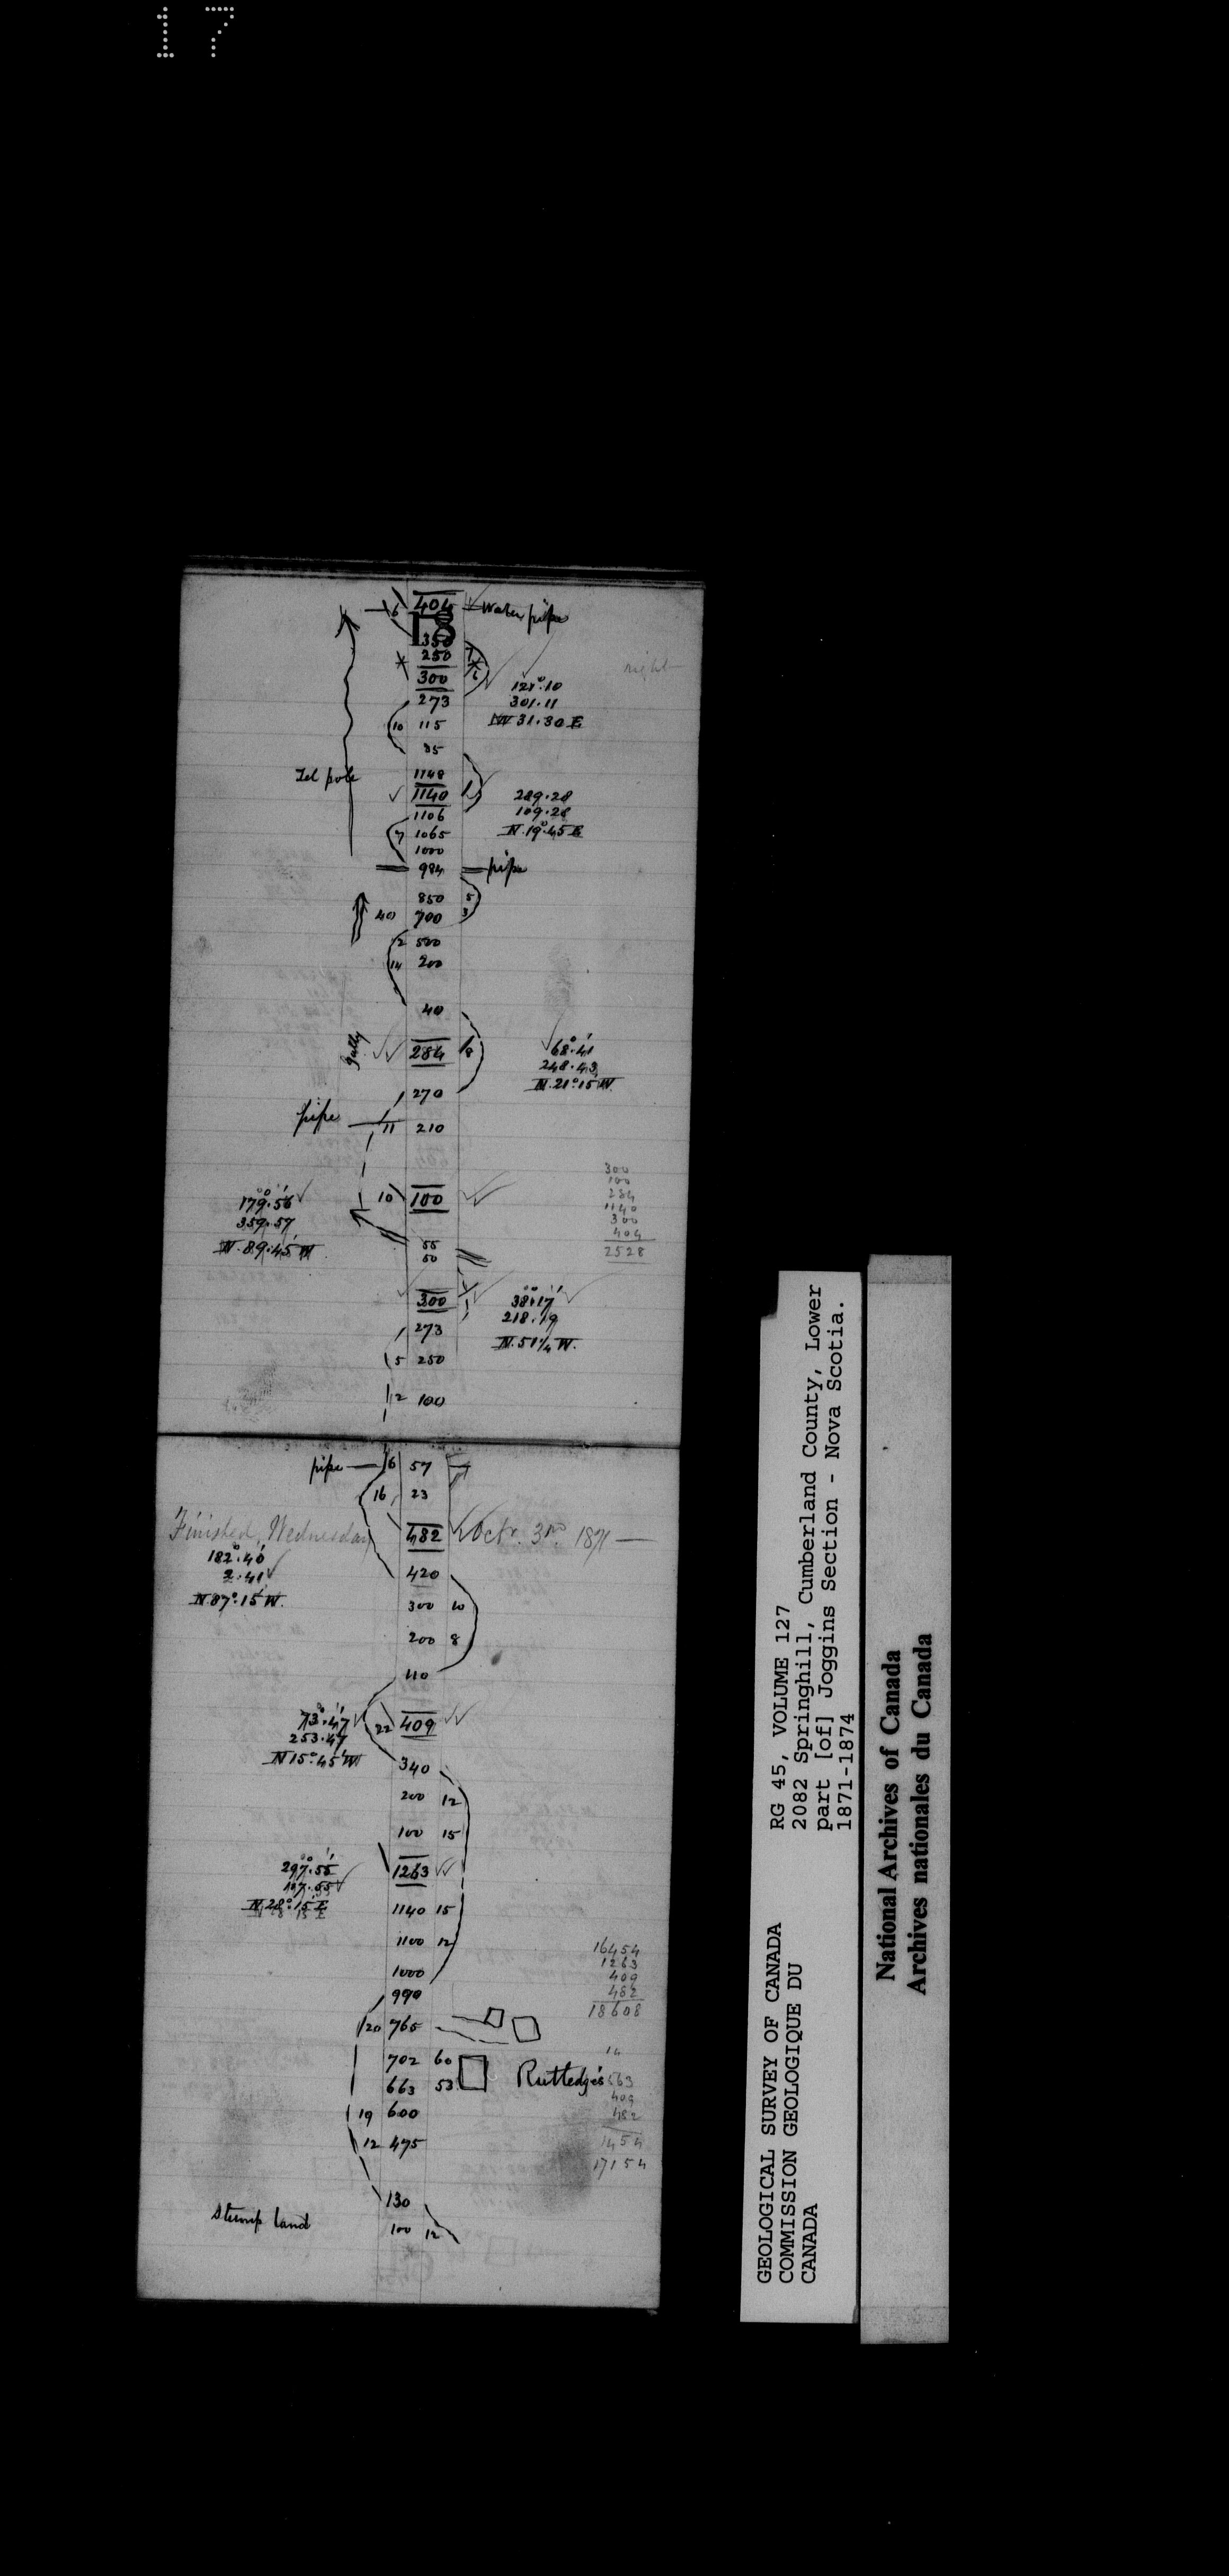 17
6 404 Water pipe
18
350
250
right
300
127°.10
273
301.11
N 31.30 E
10 115
85
Tel pole
1148
1140
289.28
1106
109.28
7 1065
N.19°.45 E
1000
984 pipe
850 5
40 700 3
2 500
14 200
40
gully
284 8
68°.41'
248.43
N.21°.15'W.
270
pipe
11 210
300
100
284
1140
300
404
2528
179°.56'
359.57
N.89.45'W
10 100
55
50
300
38°.17'
218.19
273
N.51¼ W.
5 250
12 100
pipe 6 57
16 23
Finished, Wednesday 482 Octr. 3rd 1871 —
182°.40'
2.41
N.87°.15'W.
420
300 10
200 8
110
73°.47'
253.47
N 15°.45'W
22 409
340
200 12
100 15
297°.55'
117.55
N 28°.15'E
1263
1140 15
1100 12
1000
990
16454
1263
409
482
18608
20 765
702 60
663 53
Rutledge's
563
409
482
1454
17154
19 600
12 475
130
stump land
100 12
GEOLOGICAL SURVEY OF CANADA
COMMISSION GEOLOGIQUE DU
CANADA
RG 45, VOLUME 127
2082 Springhill, Cumberland County, Lower
part [of] Joggins Section - Nova Scotia.
1871-1874
National Archives of Canada
Archives nationales du Canada